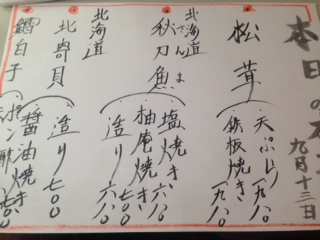 本日の
九月十三日
松茸
天ぷら 一九八〇
鉄板焼き 一九八〇
北海道
さんま
秋刀魚
塩焼き 六八〇
柚庵焼き 七〇〇
造り 六八〇
北海道
北寄貝
造り 七〇〇
醤油焼き
鱈白子
ポン酢